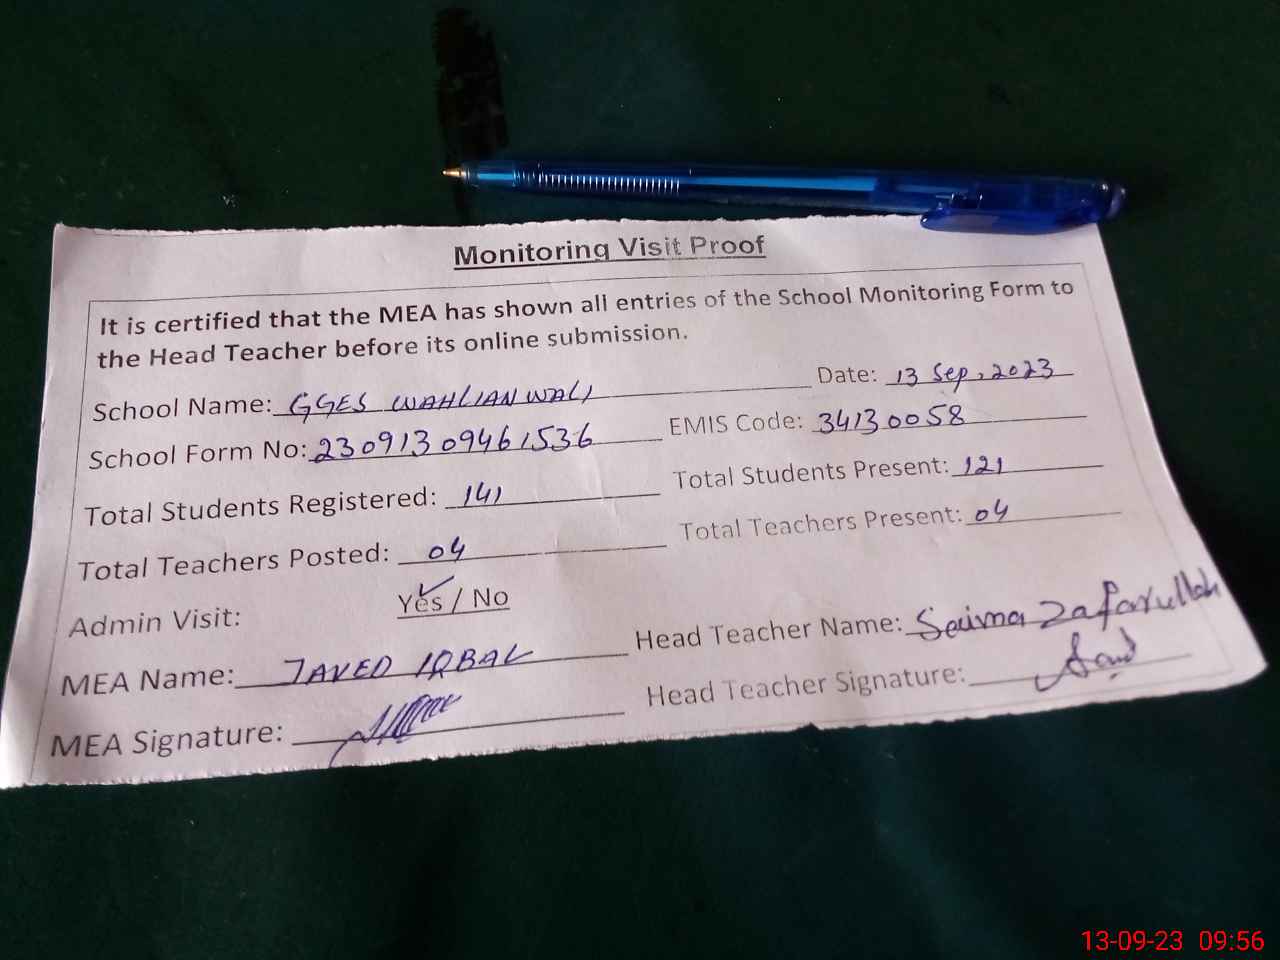 Monitoring Visit Proof
It is certified that the MEA has shown all entries of the School Monitoring Form to
the Head Teacher before its online submission.
School Name: GGES WAHLIANWALI Date: 13 Sep, 2023
School Form No: 23091309461536 EMIS Code: 34130058
Total Students Registered: 141 Total Students Present: 121
Total Teachers Posted: 04 Total Teachers Present: 04
Admin Visit: Yes / No
MEA Name: JAVED IQBAL Head Teacher Name: Saima Zafarullah
MEA Signature: Head Teacher Signature:
13-09-23 09:56